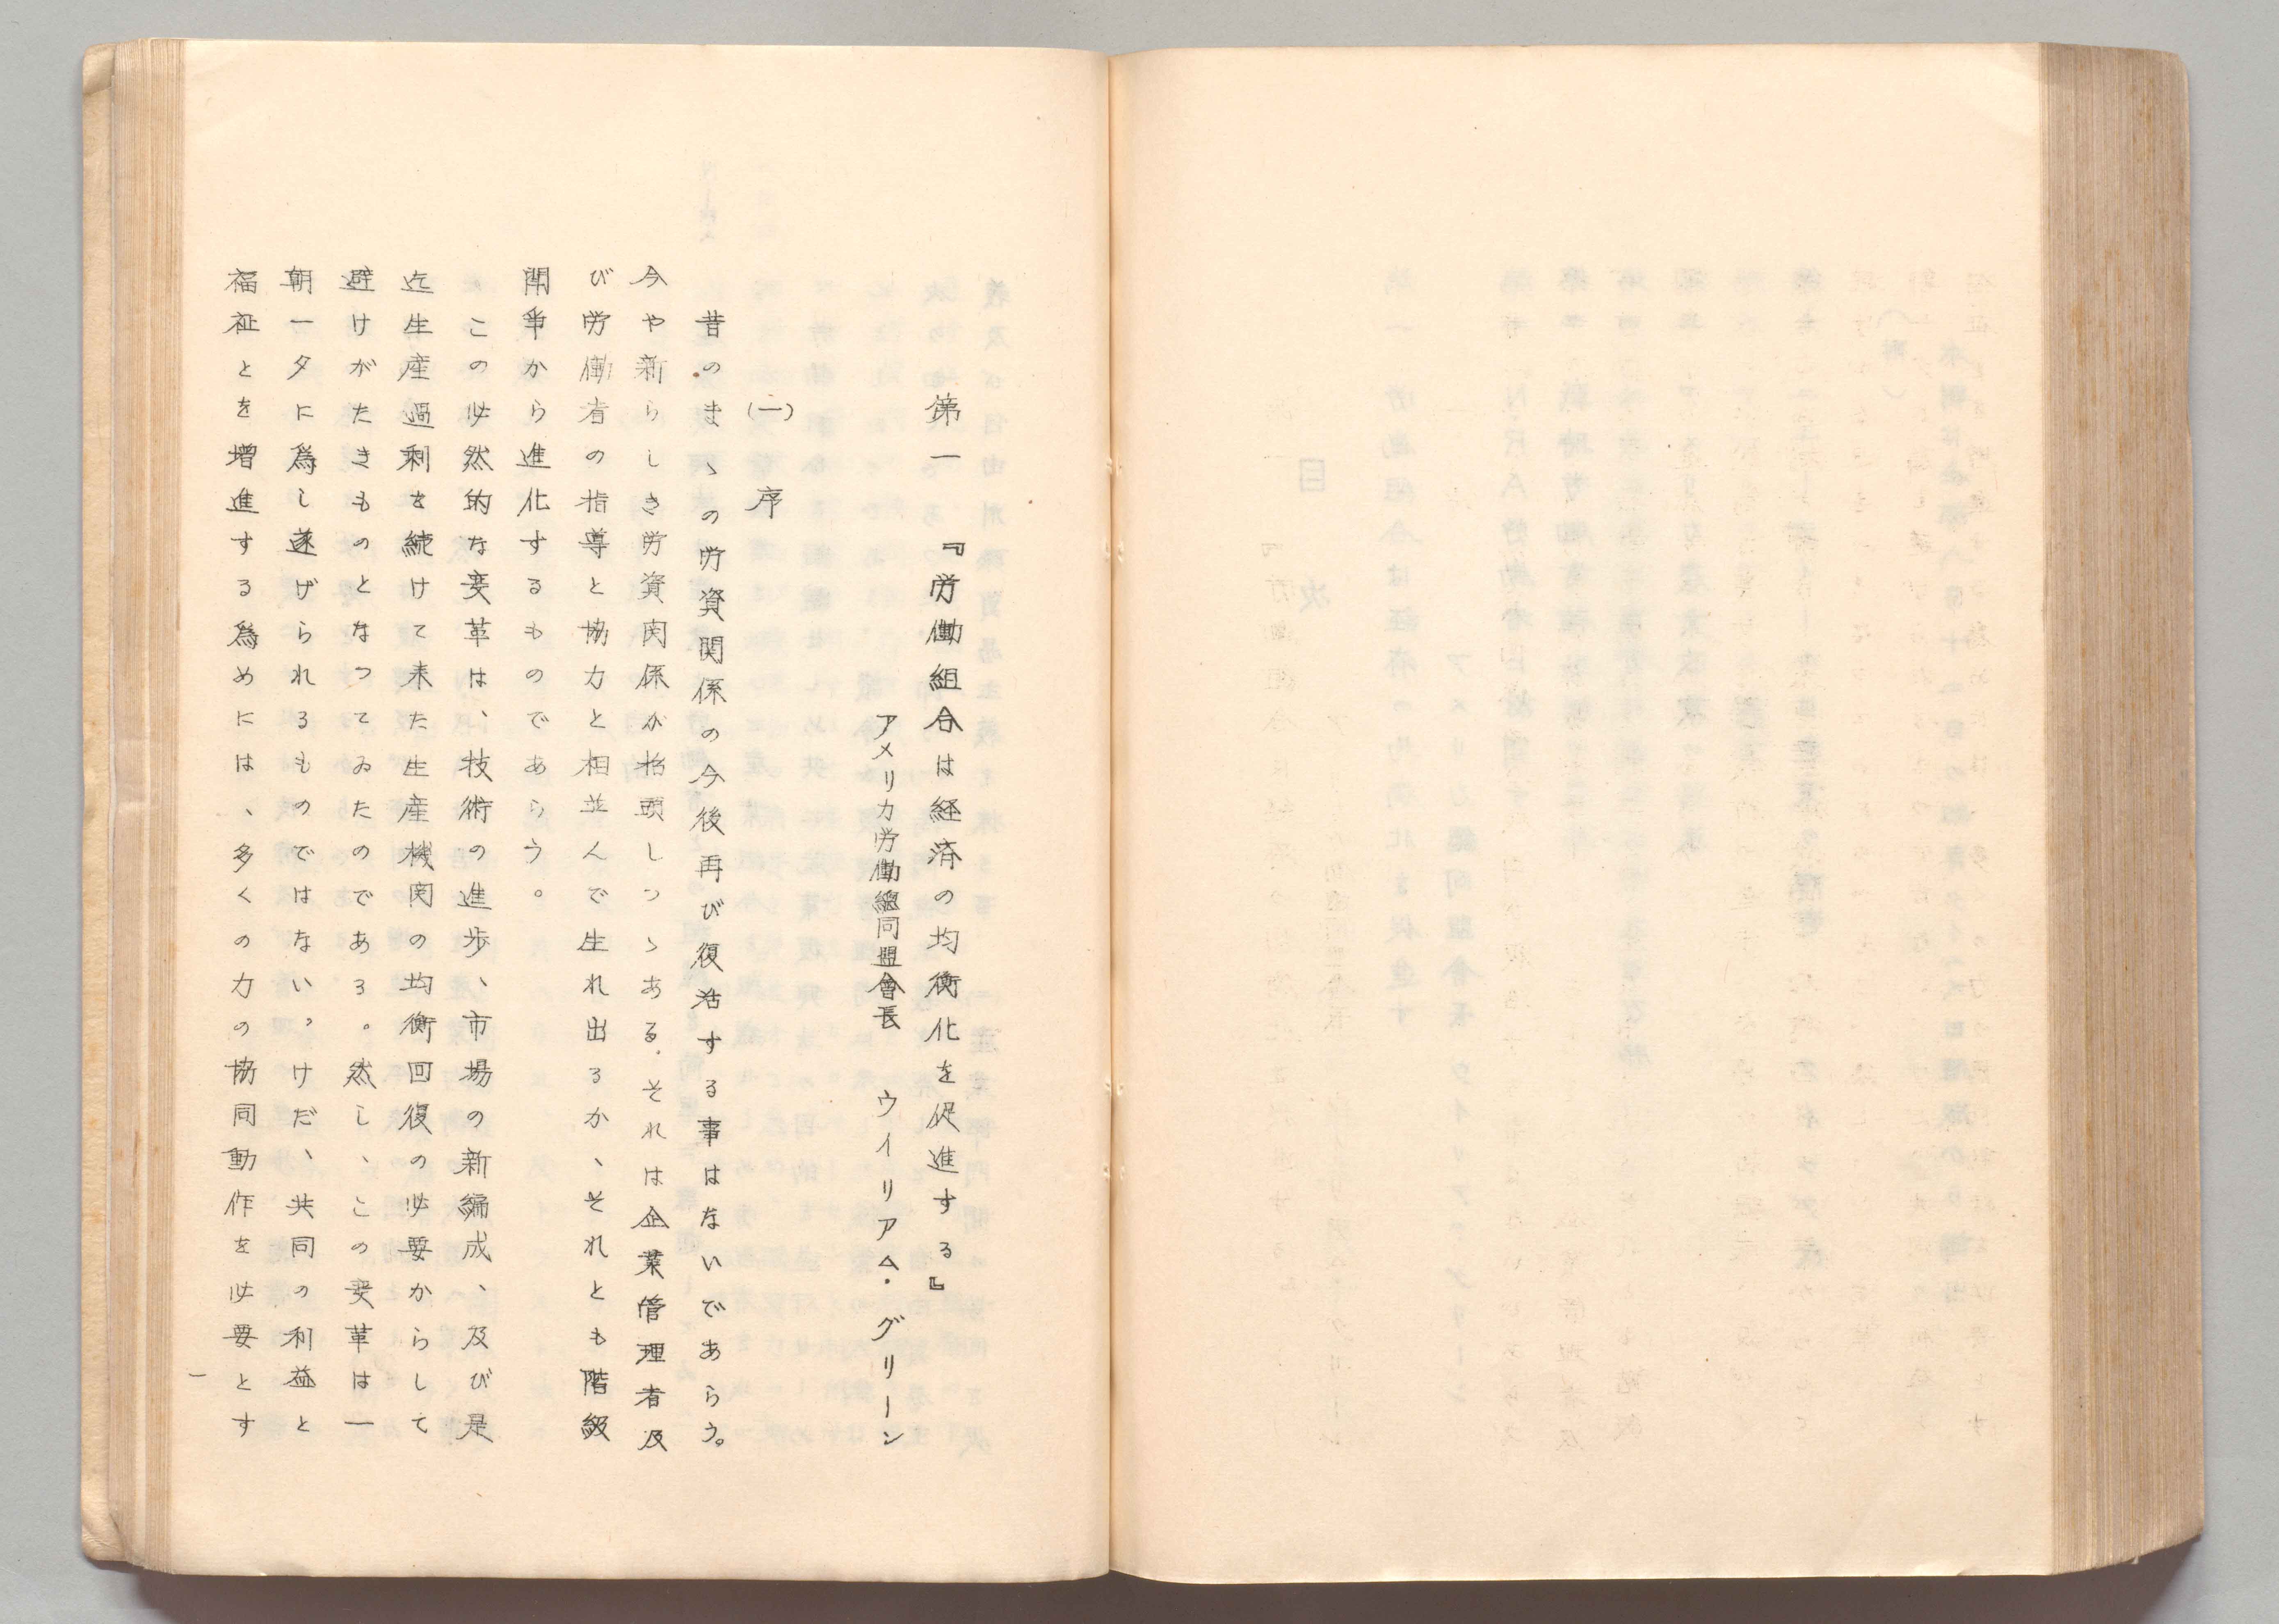 第一　『労働組合は経済の均衡化を促進する』
アメリカ労働總同盟會長　ウイリアム・グリーン
(一)　序
昔のまゝの労資関係の今後再び復活する事はないであらう。
今や新らしき労資関係が抬頭しつゝある。それは企業管理者及
び労働者の指導と協力と相並んで生れ出るか、それとも階級
闘争から進化するものであらう。
この必然的な変革は、技術の進歩、市場の新編成、及び是
迄生産過剰を続けて来た生産機関の均衡回復の必要からして
避けがたきものとなつてゐたのである。然し、この変革は一
朝一夕に為し遂げられるものではない。けだ、共同の利益と
福祉とを増進する為めには、多くの力の協同動作を必要とす
一